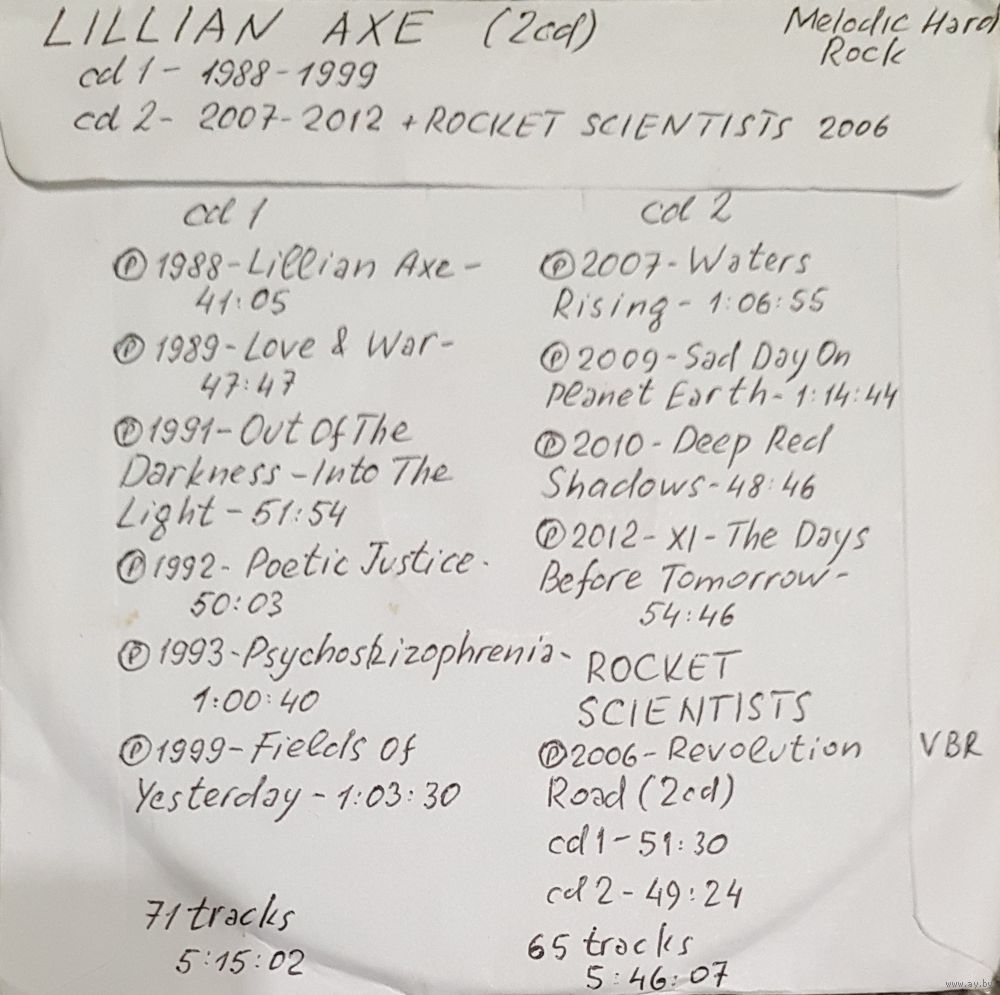 LILLIAN AXE (2cd)
Melodic Hard
Rock
cd 1 - 1988-1999
cd 2- 2007-2012 + ROCKET SCIENTISTS 2006
cd 1
Ⓟ 1988-Lillian Axe -
41:05
Ⓟ 1989-Love & War-
47:47
Ⓟ 1991-Out Of The
Darkness -Into The
Light - 51:54
Ⓟ 1992- Poetic Justice -
50:03
Ⓟ 1993-Psychoskizophrenia-
1:00:40
Ⓟ 1999-Fields Of
Yesterday - 1:03:30
71 tracks
5:15:02
cd 2
Ⓟ 2007- Waters
Rising - 1:06:55
Ⓟ 2009-Sad Day On
Planet Earth- 1:14:44
Ⓟ 2010 - Deep Red
Shadows-48:46
Ⓟ 2012- XI - The Days
Before Tomorrow -
54:46
ROCKET
SCIENTISTS
Ⓟ 2006- Revolution
Road (2cd)
cd 1 - 51:30
cd 2 - 49:24
65 tracks
5:46:07
VBR
www.ay.by